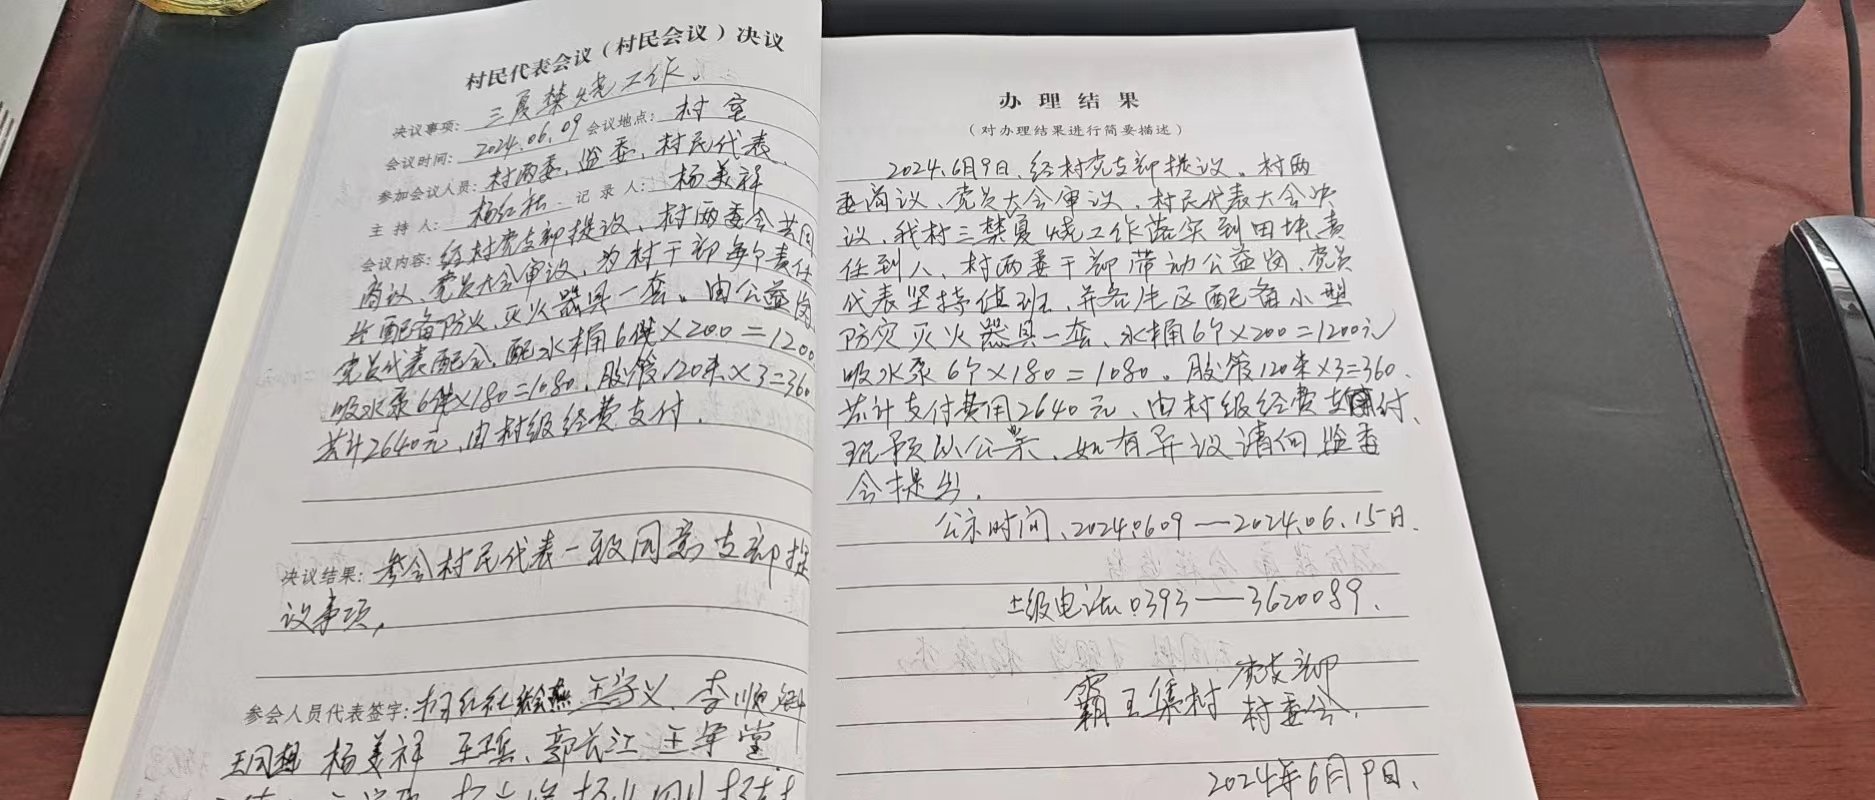 村民代表会议（村民会议）决议
决议事项：三夏禁烧工作
会议时间：2024.06.09 会议地点：村室
参加会议人员：村两委、监委、村民代表
主持人：杨红社 记录人：杨美祥
会议内容：经村党支部提议、村两委会共同
商议、党员大会审议，为村干部每个责任
配备防火、灭火器具一套。由公益岗
党员代表配合，配水桶6个×200=1200
吸水泵6个×180=1080，胶管120米×3=360
共计2640元，由村级经费支付.
决议结果：参会村民代表一致同意支部提
议事项，
参会人员代表签字：杨红社 王守义、李顺
杨美祥 郭长江 王军堂
办理结果
（对办理结果进行简要描述）
2024.6月9日，经村党支部提议、村两
委商议、党员大会审议、村民代表大会决
议，我村三禁夏烧工作落实到田块责
任到人，村两委干部带动公益岗、党员
代表坚持值班，并各片区配备小型
防灾灭火器具一套、水桶6个×200=1200元
吸水泵6个×180=1080。胶管120米×3=360.
共计支付费用2640元、由村级经费支付、
现予以公示、如有异议请向监委
会提出.
公示时间、2024.0609—2024.06.15日.
上级电话：0393—3620089.
霸王集村 党支部
村委会.
2024年6月9日.